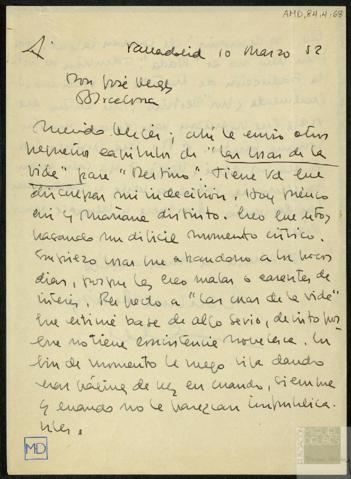 AMD,84,4,68
Valladolid 10 Marzo 52
Don José Vergés
Barcelona
Querido Vergés; ahí le envío otro
pequeño capítulo de "Las cosas de la
vida" para "Destino". Tiene Vd que
disculpar mi indecisión. Hoy pienso
así y mañana distinto. Creo que estoy
pasando un difícil momento crítico.
Empiezo cosas que abandono a los pocos
días, porque las creo malas o carentes de
interés. Respecto a "Las cosas de la vida"
que estimé base de algo serio, desisto por
que no tiene consistencia novelesca. En
fin de momento le ruego siga dando
una página de vez en cuando, siempre
y cuando no le parezcan impublica-
bles.
MD
MIGUEL
DELIBES